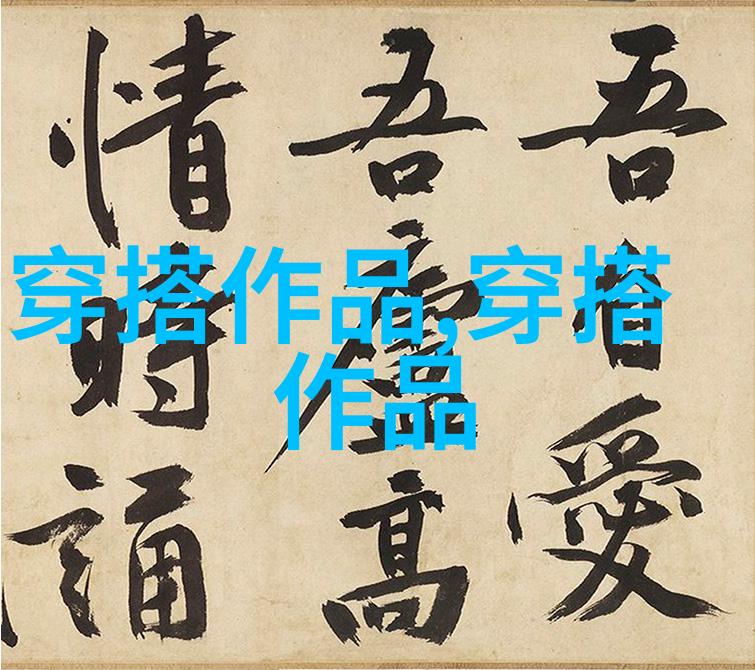 穿搭作品,穿搭
作品
吾愛
吾廬高
情時誦